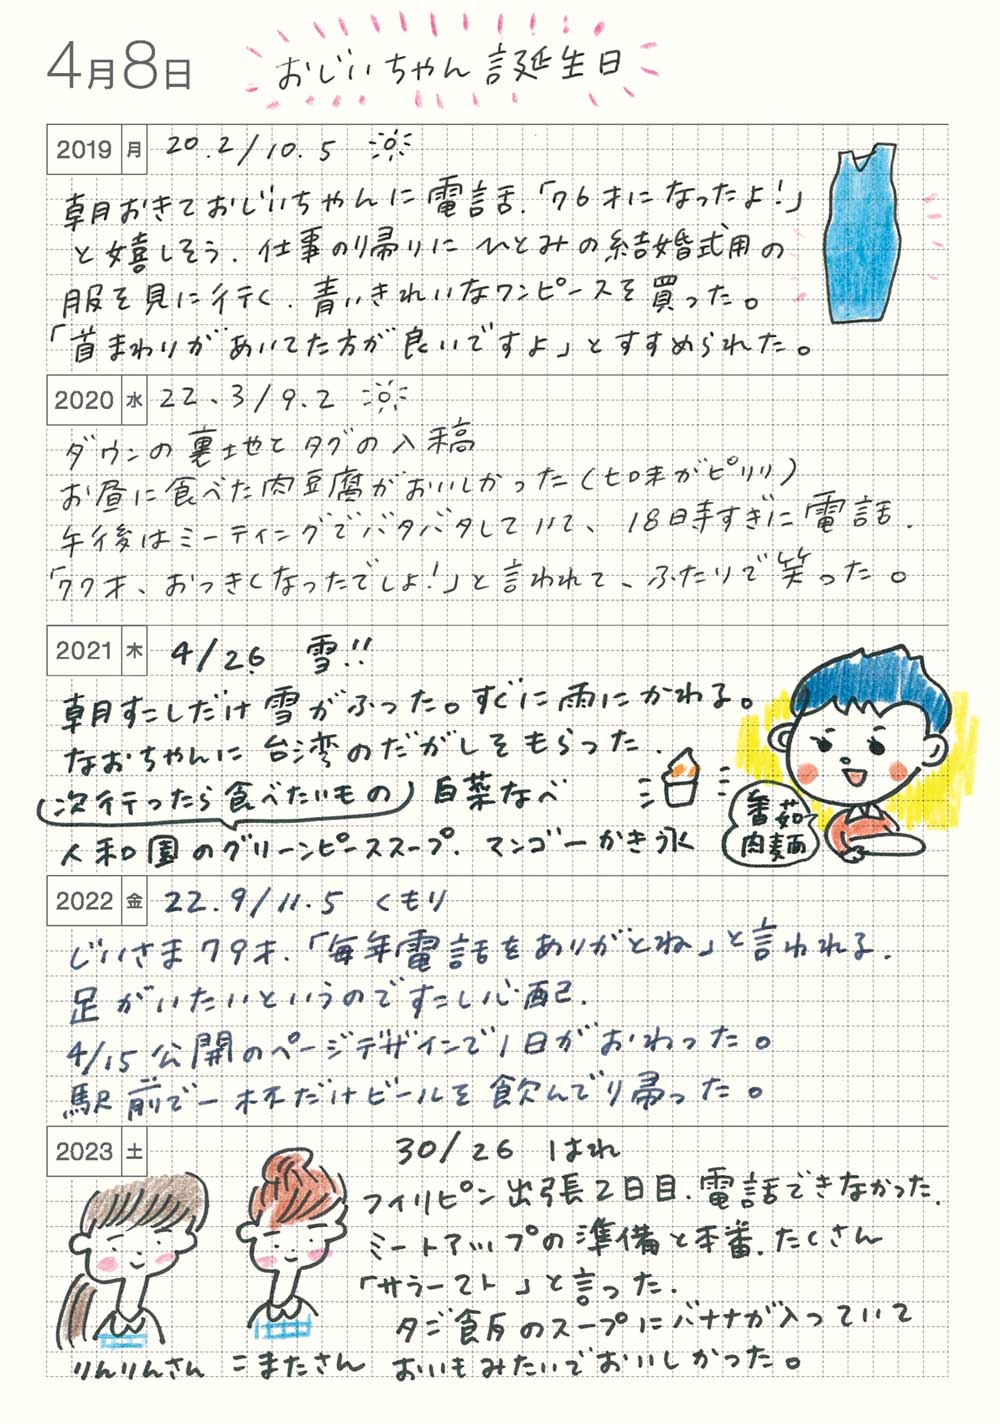 4月8日 おじいちゃん誕生日
2019 月 20.2/10.5
朝おきておじいちゃんに電話.「76才になったよ!」
と嬉しそう.仕事の帰りにひとみの結婚式用の
服を見に行く.青いきれいなワンピースを買った。
「首まわりがあいてた方が良いですよ」とすすめられた。
2020 水 22.3/9.2
ダウンの裏地とタグの入稿
お昼に食べた肉豆腐がおいしかった(七味がピリリ)
午後はミーティングでバタバタしていて、18時すぎに電話.
「77才、おっきくなったでしょ!」と言われて、ふたりで笑った。
2021 木 4/26 雪!!
朝すこしだけ雪がふった。すぐに雨にかわる。
なおちゃんに台湾のだがしをもらった.
次行ったら食べたいもの 白菜なべ
人和園のグリーンピーススープ.マンゴーかき氷
番茄
肉麺
2022 金 22.9/11.5 くもり
じいさま79才.「毎年電話をありがとね」と言われる.
足がいたいというのですこし心配.
4/15公開のページデザインで1日がおわった。
駅前で一杯だけビールを飲んでり帰った。
2023 土 30/26 はれ
フィリピン出張2日目.電話できなかった.
ミートアップの準備と本番.たくさん
「サラーマト」と言った.
夕ご飯のスープにバナナが入っていて
おいもみたいでおいしかった。
りんりんさん こまたさん